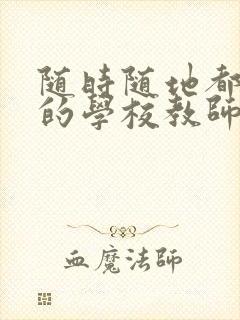 随時随地都
的學校教師
血魔法師